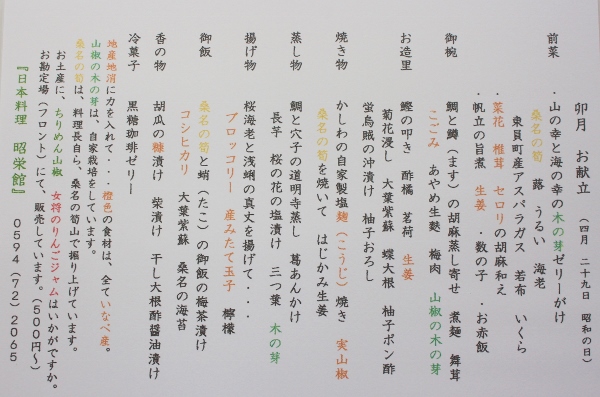 卯月 お献立 (四月 二十九日 昭和の日)
前菜 ・山の幸と海の幸の木の芽ゼリーがけ
桑名の筍 蕗 うるい 海老
東員町産アスパラガス 若布 いくら
・菜花 椎茸 セロリの胡麻和え
・帆立の旨煮 生姜 ・数の子 ・お赤飯
御椀 鯛と鱒(ます)の胡麻蒸し寄せ 煮麺 舞茸
こごみ あやめ生麩 梅肉 山椒の木の芽
お造里 鰹の叩き 酢橘 茗荷 生姜
菊花浸し 大葉紫蘇 蝶大根 柚子ポン酢
蛍烏賊の沖漬け 柚子おろし
焼き物 かしわの自家製塩麹(こうじ)焼き 実山椒
桑名の筍を焼いて はじかみ生姜
蒸し物 鯛と穴子の道明寺蒸し 葛あんかけ
長芋 桜の花の塩漬け 三つ葉 木の芽
揚げ物 桜海老と浅蜊の真丈を揚げて・・・
ブロッコリー 産みたて玉子 檸檬
御飯 桑名の筍と蛸(たこ)の御飯の梅茶漬け
コシヒカリ 大葉紫蘇 桑名の海苔
香の物 胡瓜の糠漬け 柴漬け 干し大根酢醤油漬け
冷菓子 黒糖珈琲ゼリー
地産地消に力を入れて・・・橙色の食材は、全ていなべ産。
山椒の木の芽は、自家栽培をしています。
桑名の筍は、料理長自ら、桑名の筍山で掘り上げています。
お土産に、ちりめん山椒 女将のりんごジャムはいかがですか。
お勘定場(フロント)にて、販売しています。(500円~)
『日本料理 昭栄館』 0594(72)2065